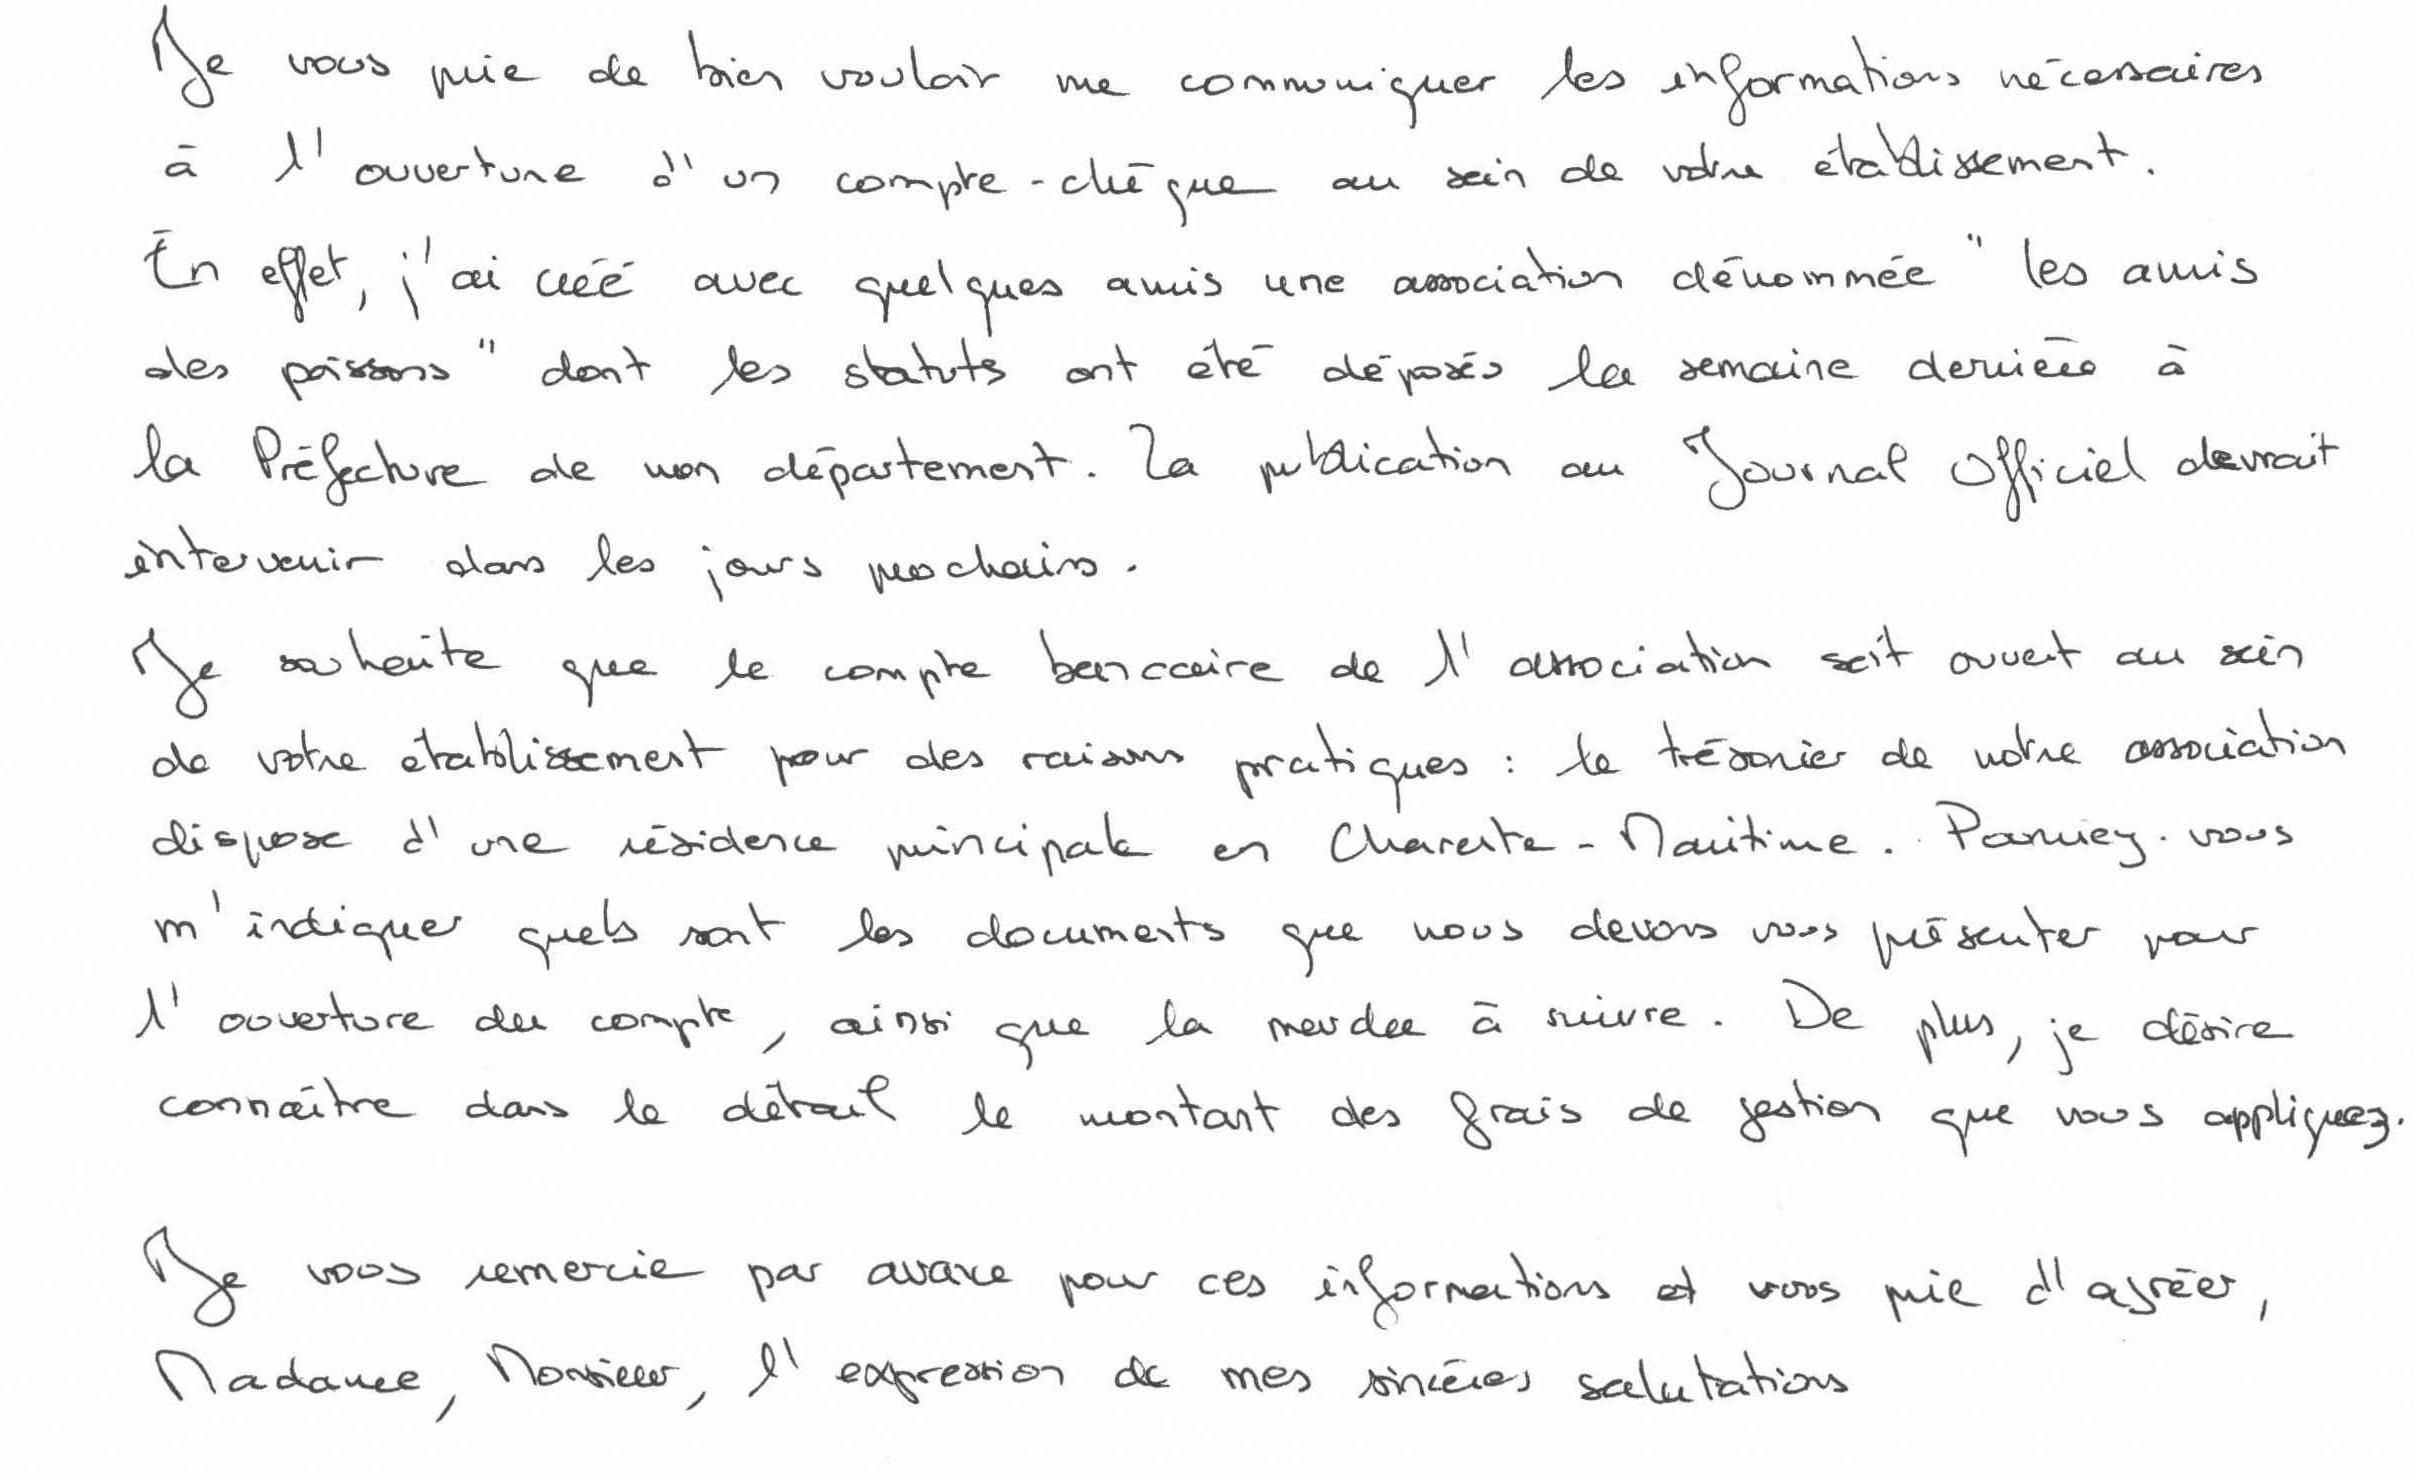 Je vous prie de bien vouloir me communiquer les informations nécessaires
à l'ouverture d'un compte-chèque au sein de votre établissement.
En effet, j'ai créé avec quelques amis une association dénommée "les amis
des poissons" dont les statuts ont été déposés la semaine dernière à
la Préfecture de mon département. La publication au Journal Officiel devrait
intervenir dans les jours prochains.
Je souhaite que le compte bancaire de l'association soit ouvert au sein
de votre établissement pour des raisons pratiques : le trésorier de notre association
dispose d'une résidence principale en Charente-Maritime. Pourriez-vous
m'indiquer quels sont les documents que nous devons vous présenter pour
l'ouverture du compte, ainsi que la marche à suivre. De plus, je désire
connaître dans le détail le montant des frais de gestion que vous appliquez.
Je vous remercie par avance pour ces informations et vous prie d'agréer,
Madame, Monsieur, l'expression de mes sincères salutations